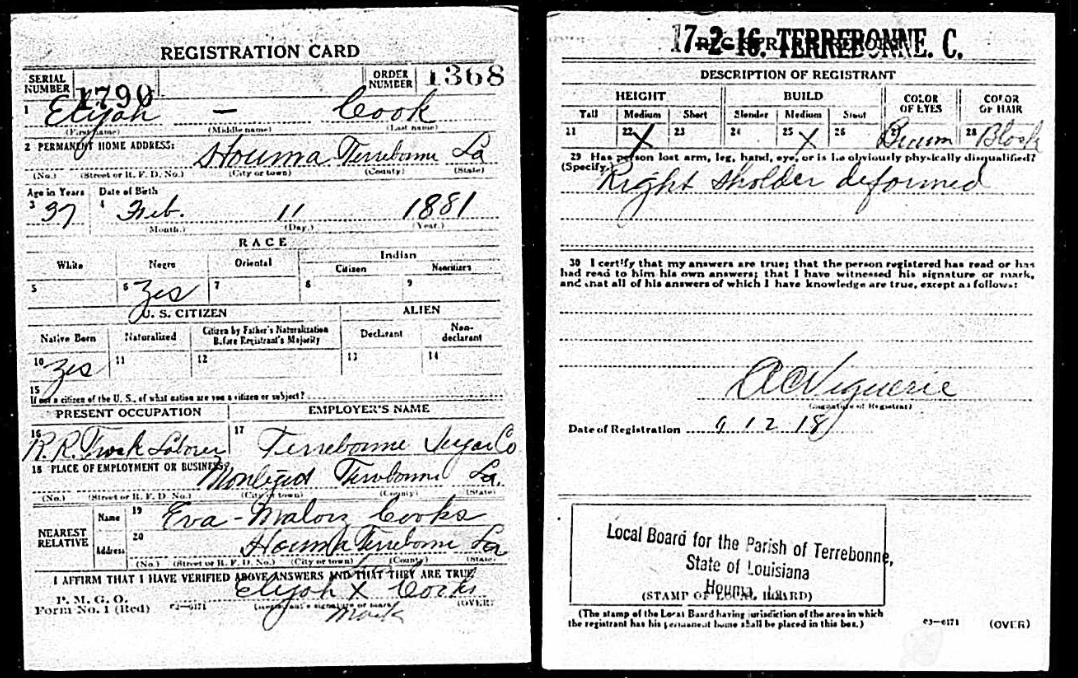 REGISTRATION CARD
SERIAL NUMBER 1790 ORDER NUMBER 1368
1 Elijah — Cook
(First name) (Middle name) (Last name)
2 PERMANENT HOME ADDRESS:
Houma Terrebonne La
(No.) (Street or R. F. D. No.) (City or town) (County) (State)
Age in Years Date of Birth
3 37 4 Feb. 11 1881
(Month.) (Day.) (Year.)
RACE
White Negro Oriental Indian
Citizen Noncitizen
5 6 Yes 7 8 9
U. S. CITIZEN ALIEN
Native Born Naturalized Citizen by Father's Naturalization Before Registrant's Majority Declarant Non-declarant
10 Yes 11 12 13 14
15
If not a citizen of the U. S., of what nation are you a citizen or subject?
PRESENT OCCUPATION EMPLOYER'S NAME
16 R.R. Track Laborer 17 Terrebonne Sugar Co
18 PLACE OF EMPLOYMENT OR BUSINESS:
Montegut Terrebonne La.
(No.) (Street or R. F. D. No.) (City or town) (County) (State)
NEAREST RELATIVE Name 19 Eva - Cooks
Address 20 Houma Terrebonne La
(No.) (Street or R. F. D. No.) (City or town) (County) (State)
I AFFIRM THAT I HAVE VERIFIED ABOVE ANSWERS AND THAT THEY ARE TRUE
P. M. G. O.
Form No. 1 (Red) 03—6171 Elijah X Cooks
(Registrant's signature or mark) (OVER)
Mark
17-2-16. TERREBONNE. C.
DESCRIPTION OF REGISTRANT
HEIGHT BUILD COLOR OF EYES COLOR OF HAIR
Tall Medium Short Slender Medium Stout
21 22 X 23 24 25 X 26 27 Brown 28 Black
29 Has person lost arm, leg, hand, eye, or is he obviously physically disqualified?
(Specify.) Right sholder deformed
30 I certify that my answers are true; that the person registered has read or has
had read to him his own answers; that I have witnessed his signature or mark,
and that all of his answers of which I have knowledge are true, except as follows:
A C Viguerie
(Signature of Registrar)
Date of Registration 9 12 18
Local Board for the Parish of Terrebonne,
State of Louisiana
Houma, La.
(STAMP OF LOCAL BOARD)
(The stamp of the Local Board having jurisdiction of the area in which
the registrant has his permanent home shall be placed in this box.)
03—6171 (OVER)